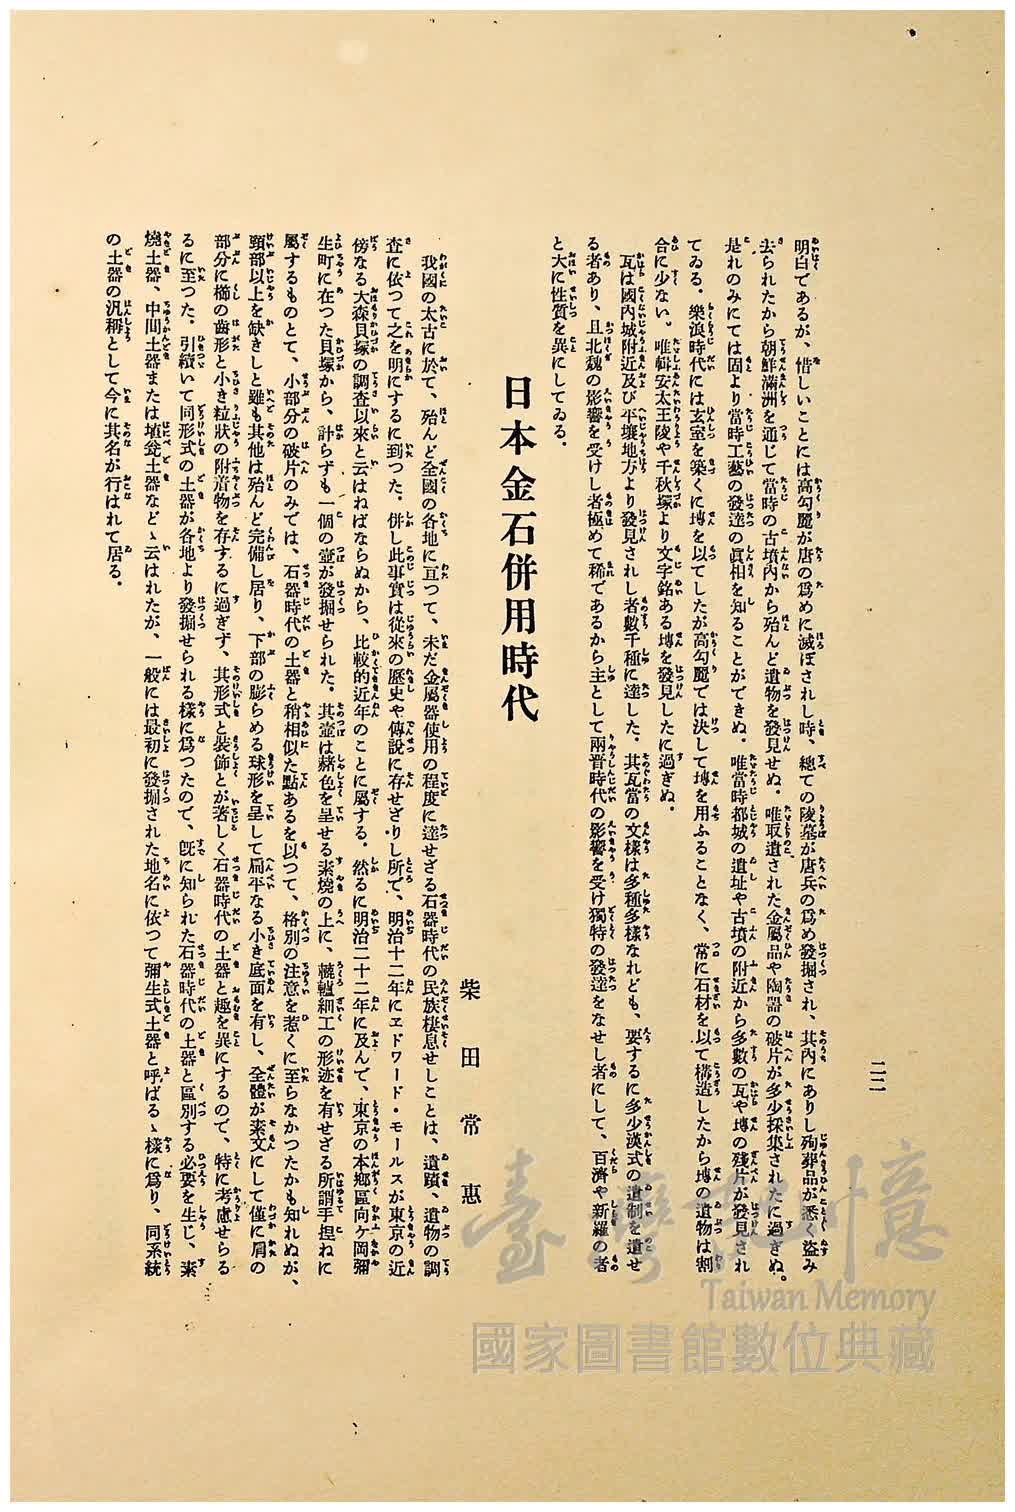 二二
明白であるが、惜しいことには高勾麗が唐の爲めに滅ぼされし時、總ての陵墓が唐兵の爲め發掘され、其內にありし殉葬品が悉く盜み
去られたから朝鮮滿洲を通じて當時の古墳內から殆んど遺物を發見せぬ。唯取遺された金屬品や陶器の破片が多少採集されたに過ぎぬ。
是れのみにては固より當時工藝の發達の眞相を知ることができぬ。唯當時都城の遺址や古墳の附近から多數の瓦や塼の殘片が發見され
てゐる。樂浪時代には玄室を築くに塼を以てしたが高勾麗では決して塼を用ふることなく、常に石材を以て構造したから塼の遺物は割
合に少ない。唯輯安太王陵や千秋塚より文字銘ある塼を發見したに過ぎぬ。
瓦は國內城附近及び平壤地方より發見されし者數千種に達した。其瓦當の文樣は多種多樣なれども、要するに多少漢式の遺制を遺せ
る者あり、且北魏の影響を受けし者極めて稀であるから主として兩晋時代の影響を受け獨特の發達をなせし者にして、百濟や新羅の者
と大に性質を異にしてゐる。
日本金石併用時代
柴田常惠
我國の太古に於て、殆んど全國の各地に亙つて、未だ金屬器使用の程度に達せざる石器時代の民族棲息せしことは、遺蹟、遺物の調
査に依つて之を明にするに到つた。併し此事實は從來の歷史や傳說に存せざりし所で、明治十二年にエドワード・モールスが東京の近
傍なる大森貝塚の調査以來と云はねばならぬから、比較的近年のことに屬する。然るに明治二十二年に及んで、東京の本鄕區向ケ岡彌
生町に在つた貝塚から、計らずも一個の壺が發掘せられた。其壺は赭色を呈せる素燒の上に、轆轤細工の形迹を有せざる所謂手捏ねに
屬するものとて、小部分の破片のみでは、石器時代の土器と稍相似た點あるを以つて、格別の注意を惹くに至らなかつたかも知れぬが、
頸部以上を缺きしと雖も其他は殆んど完備し居り、下部の膨らめる球形を呈して扁平なる小き底面を有し、全體が素文にして僅に肩の
部分に櫛の齒形と小き粒狀の附着物を存するに過ぎず、其形式と裝飾とが著しく石器時代の土器と趣を異にするので、特に考慮せらる
るに至つた。引續いて同形式の土器が各地より發掘せられる樣に爲つたので、旣に知られた石器時代の土器と區別する必要を生じ、素
燒土器、中間土器または埴瓮土器などゝ云はれたが、一般には最初に發掘された地名に依つて彌生式土器と呼ばるゝ樣に爲り、同系統
の土器の汎稱として今に其名が行はれて居る。
臺灣記憶
Taiwan Memory
國家圖書館數位典藏